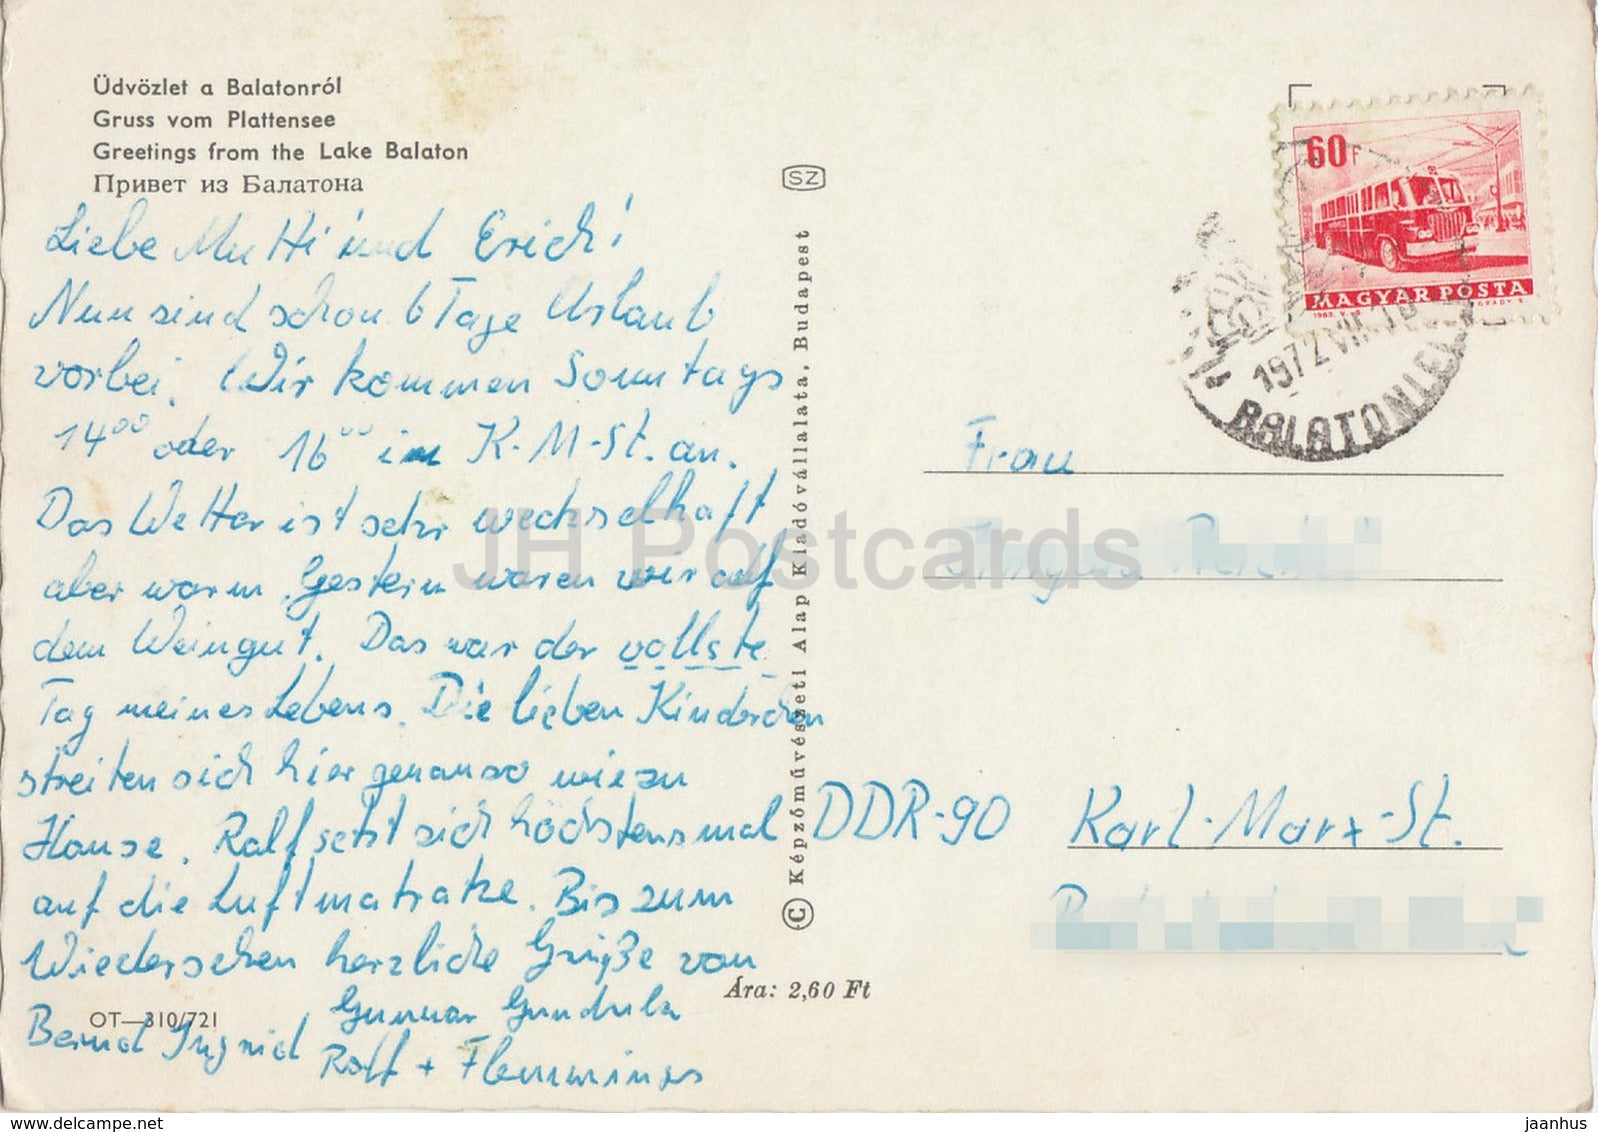 Üdvözlet a Balatonról
Gruss vom Plattensee
Greetings from the Lake Balaton
Привет из Балатона
SZ
60 F
MAGYAR POSTA
1972 VII
BALATONLEL
Liebe Mutti und Erich!
Nun sind schon 6 Tage Urlaub
vorbei. Wir kommen Sonntags
14⁰⁰ oder 16⁰⁰ in K.-M-St. an.
Das Wetter ist sehr wechselhaft
aber warm. Gestern waren wir auf
dem Weingut. Das war der vollste
Tag meines Lebens. Die lieben Kinderchen
streiten sich hier genauso wie zu
Hause. Ralf setzt sich höchstens mal
auf die Luftmatratze. Bis zum
Wiedersehen herzliche Grüße von
Bernd Ingrid Gunnar Gundula
Ralf + Flemmings
OT—310/721
© Képzőművészeti Alap Kiadóvállalata, Budapest
Ára: 2,60 Ft
Frau
DDR-90 Karl-Marx-St.
JH Postcards
www.delcampe.net
jaanhus